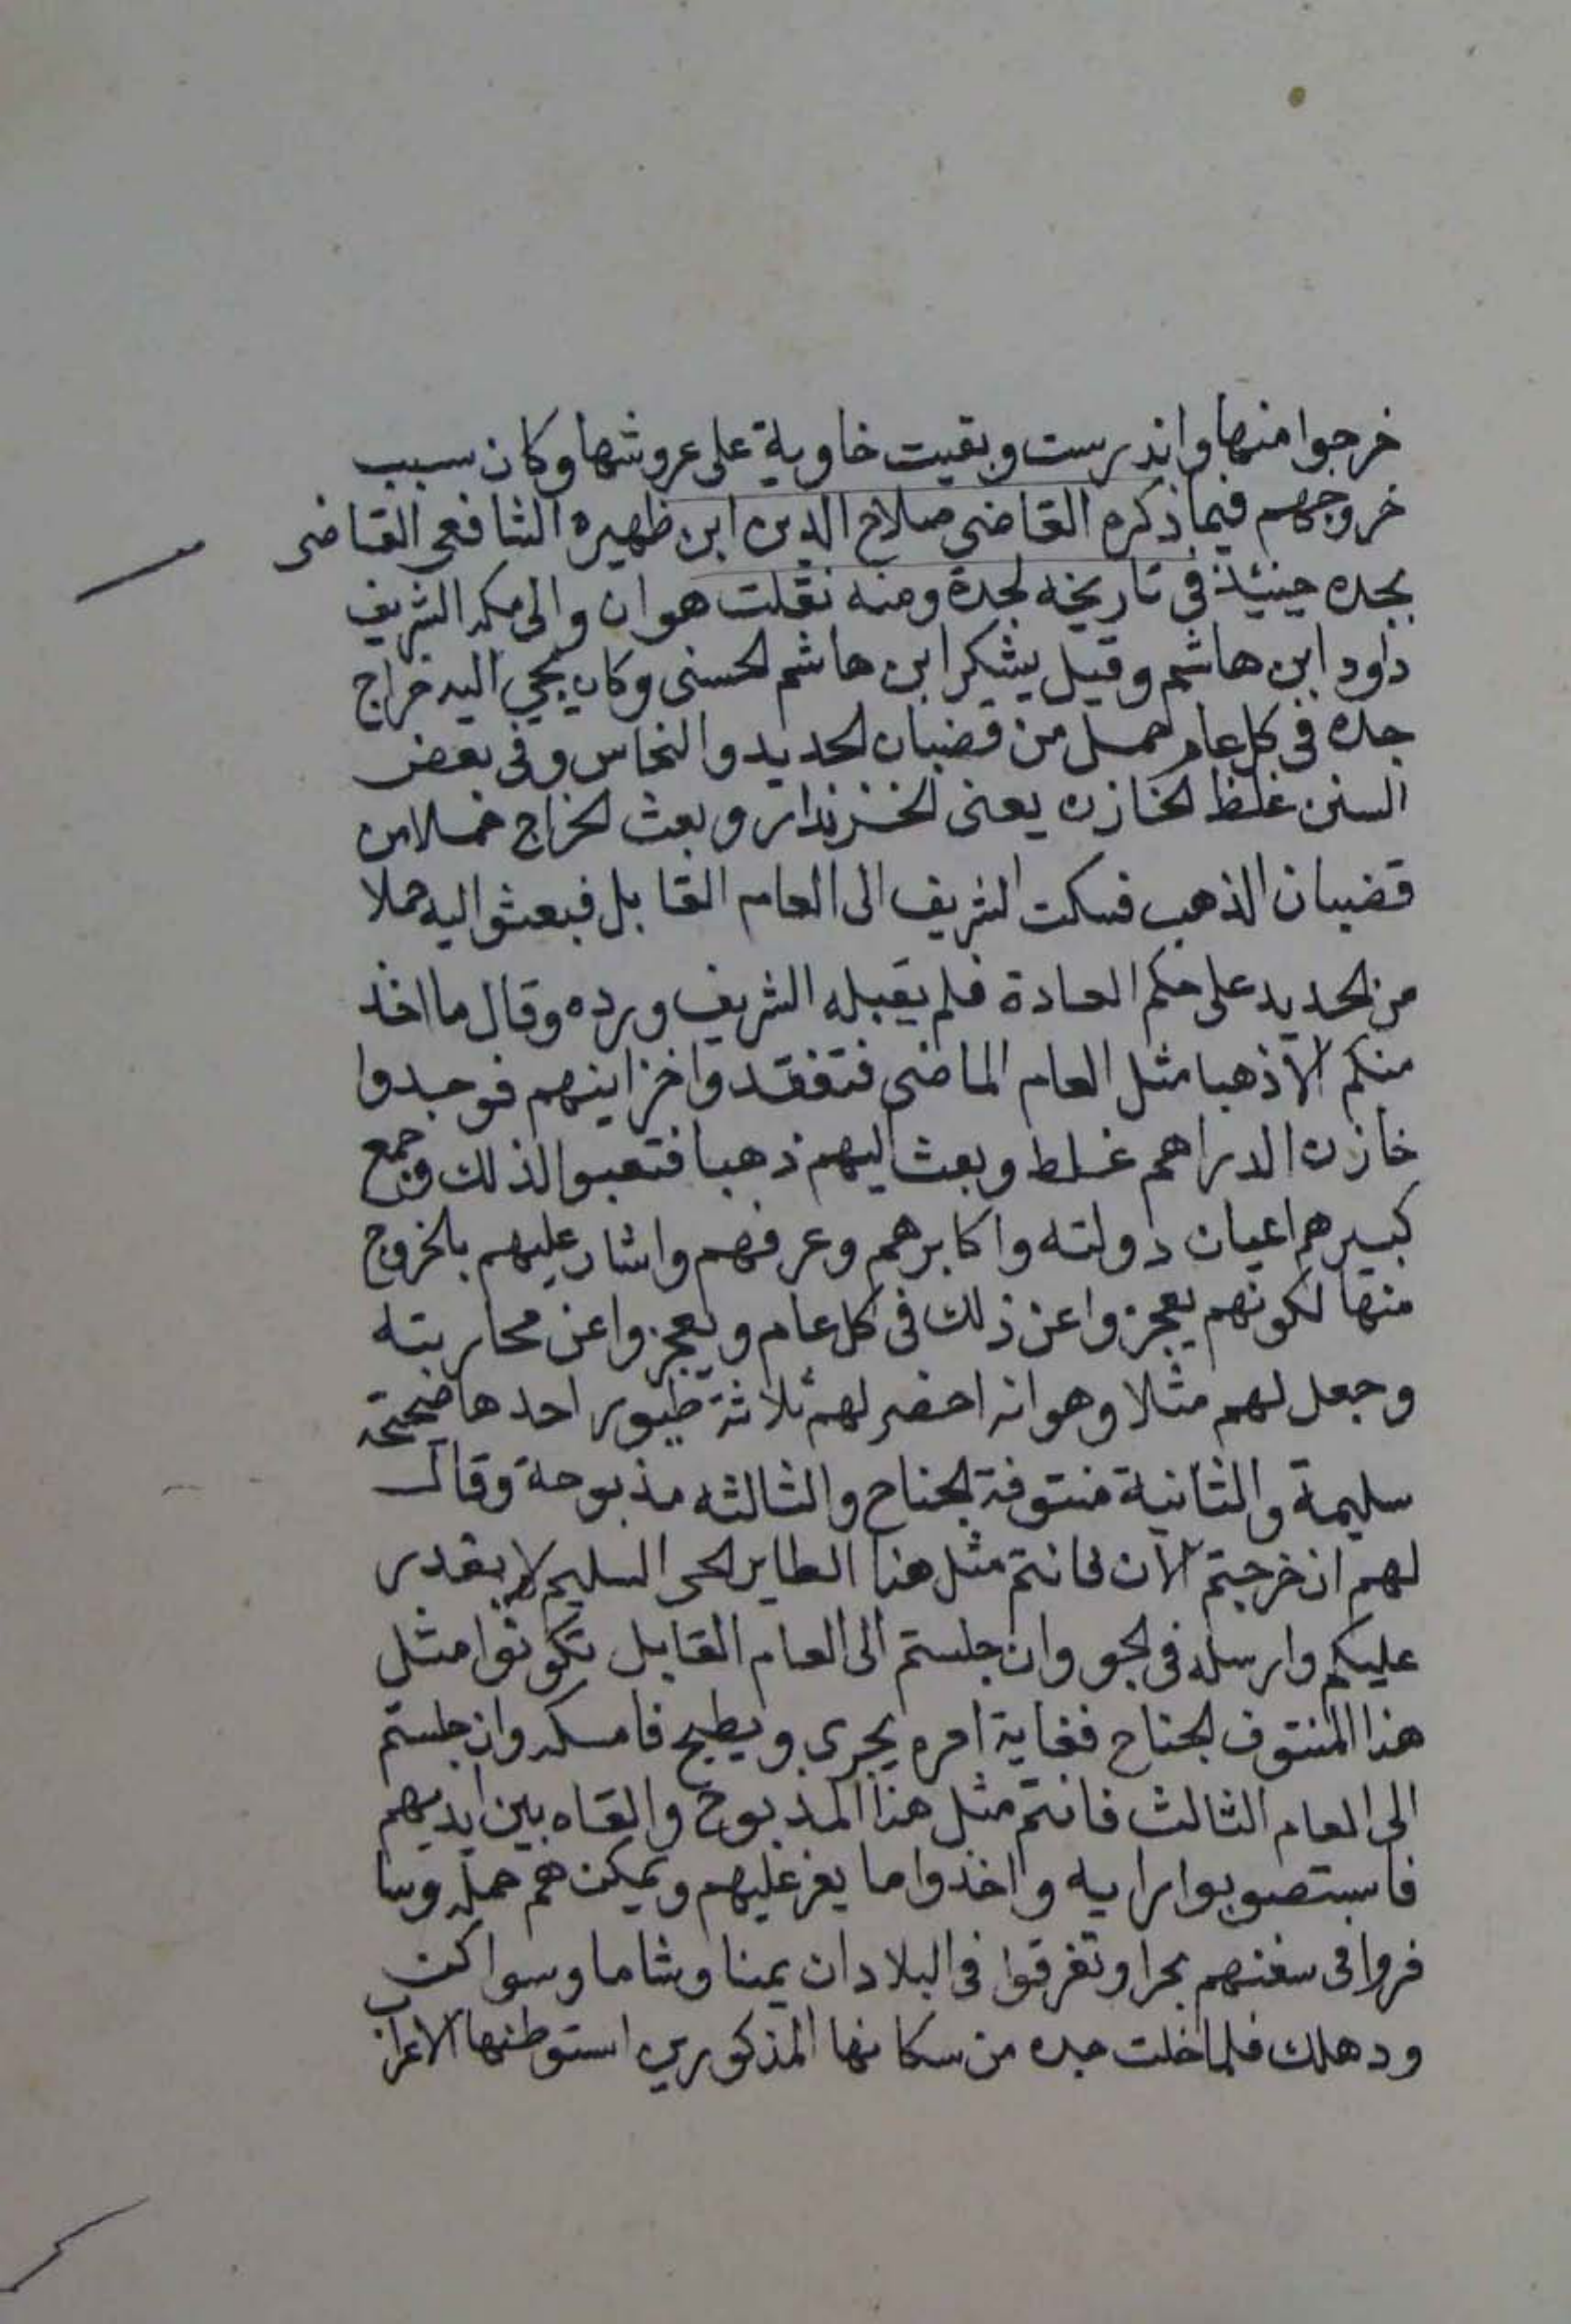 خرجوا منها واندرست وبقيت خاوية على عروشها وكان سبب
خروجهم فيما ذكره القاضى صلاح الدين ابن ظهيره الشافعى القاضى
بجده حينئذ فى تاريخه لجدة ومنه نقلت هو ان والى مكه الشريف
داود ابن هاشم وقيل يشكر ابن هاشم الحسنى وكان يجي اليه خراج
جده فى كل عام حمل من قضبان الحديد والنحاس وفى بعض
السنن غلط الخازن يعنى الخزندار وبعث الخراج حملا من
قضبان الذهب فسكت الشريف الى العام القابل فبعثوا اليه حملا
من الحديد على حكم العادة فلم يقبله الشريف ورده وقال ما اخذ
منكم الا ذهبا مثل العام الماضى فتفقدوا خزاينهم فوجدوا
خازن الدراهم غلط وبعث اليهم ذهبا فتعبوا لذلك وجمع
كبيرهم اعيان دولته واكابرهم وعرفهم واشار عليهم بالخروج
منها لكونهم يعجزوا عن ذلك فى كل عام ويعجزوا عن محاربته
وجعل لهم مثلا وهو انه احضر لهم ثلاثة طيور احدها صحيحة
سليمة والثانية منتوفة الجناح والثالثه مذبوحة وقال
لهم ان خرجتم الان فانتم مثل هذا الطاير الحى السليم لا يقدر
عليكم وارسله فى الجو وان جلستم الى العام القابل تكونوا مثل
هذا المنتوف الجناح فغاية امره يجرى ويطيح فامسكه وان جلستم
الى العام الثالث فانتم مثل هذا المذبوح والقاه بين ايديهم
فاستصوبوا رايه واخذوا ما يعز عليهم ويمكن هم حمله وسا
فروا فى سفنهم بحرا وتفرقوا فى البلادان يمنا وشاما وسواكن
ودهلك فلما خلت جده من سكانها المذكورين استوطنها الاعراب